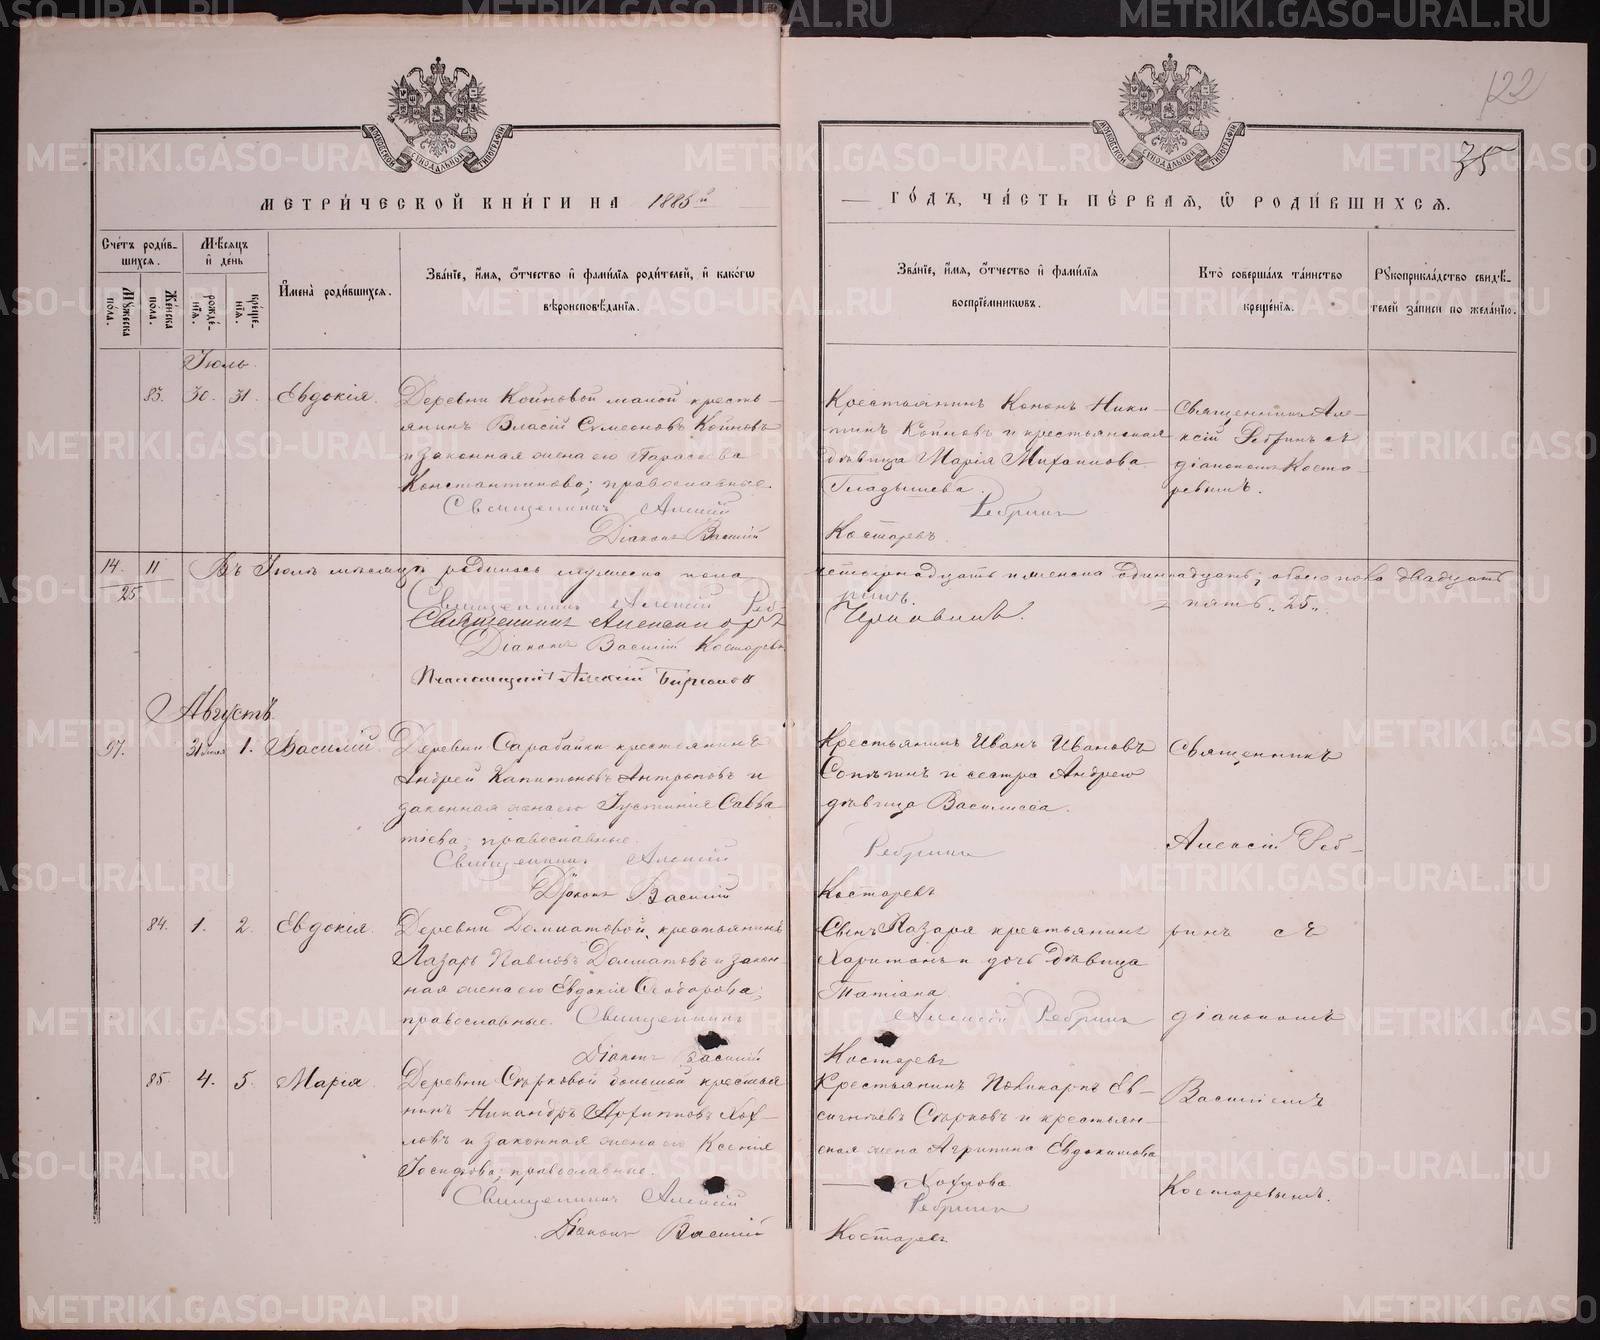 122
35
МЕТРИ́ЧЕСКОЙ КНИ́ГИ НА 1885й
ГО́ДЪ, ЧА́СТЬ ПЕ́РВАЯ, Ѡ РОДИ́ВШИХСЯ.
Сче́тъ роди́в-
шихся.
Мꙋжеска пола.
Же́нска пола.
Мѣсяцъ
и де́нь
рожде́-
нїя.
креще́-
нїя.
Имена̀ роди́вшихся.
Зва́нїе, и́мя, о́тчество и фами́лїя роди́телей, и како́гѡ
вѣроисповѣ́данїя.
Зва́нїе, и́мя, о́тчество и фами́лїя
воспрїе́мникѡвъ.
Кто̀ соверша́лъ та́инство
креще́нїя.
Рꙋкоприкла́дство свидѣ́-
телей за́писи по жела́нїю.
Іюль.
83. 30. 31. Евдокія.
Деревни Койновой малой кресть-
янинъ Власій Симеоновъ Койновъ
и законная жена его Параскева
Константинова; православные.
Священникъ Алексій
Діаконъ Василій
Крестьянинъ Кононъ Ники-
тинъ Койновъ и крестьянская
дѣвица Марія Михаилова
Гладышева.
Ребринъ
Костаревъ.
Священникъ Але-
ксій Ребринъ съ
діакономъ Коста-
ревымъ.
14. 11
25
Въ Іюлѣ мѣсяцѣ родилось мужеска пола
четырнадцать и женска одиннадцать; обоего пола двадцать
пять „25„.
Священникъ Алексій Реб-
ринъ.
Священникъ
Діаконъ Василій Костаревъ
Псаломщикъ Алексій
Августъ.
57. 31 іюля 1. Василій.
Деревни Сарабайки крестьянинъ
Андрей Капитоновъ Антроповъ и
законная жена его Іустинія Савва-
тіева; православные.
Священникъ Алексій
Діаконъ Василій
Крестьянинъ Иванъ Ивановъ
и сестра Андрея
дѣвица Василисса.
Ребринъ
Костаревъ
Священникъ
Алексій Реб-
84. 1. 2. Евдокія.
Деревни Долматовой, крестьянинъ
Лазарь Павловъ Долматовъ и закон-
ная жена его Евдокія Ѳеодорова;
православные. Священникъ
Діаконъ Василій
Сынъ Лазаря крестьянинъ
Харитонъ и дочь дѣвица
Татіана.
Алексій Ребринъ
Костаревъ
ринъ съ
діакономъ
85. 4. 5. Марія.
Деревни Сѣрковой большой крестья
нинъ Никандръ Архиповъ Хох-
ловъ и законная жена его Ксенія
Іосифова; православные.
Священникъ Алексій
Діаконъ Василій
Крестьянинъ Поликарпъ Ев-
сигнѣевъ Сѣрковъ и крестьян-
ская жена Агрипина Евдокимова
Хохлова.
Ребринъ
Костаревъ
Василіемъ
Костаревымъ.
METRIKI.GASO-URAL.RU